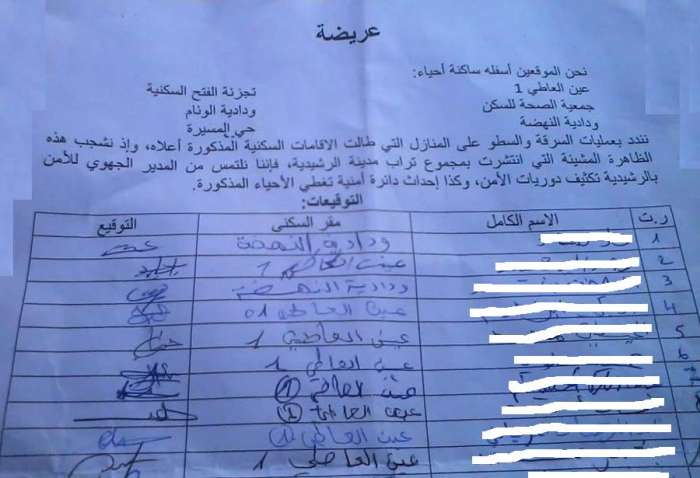 عريضة
نحن الموقعين أسفله ساكنة أحياء:
عين العاطي 1 تجزئة الفتح السكنية
جمعية الصحة للسكن ودادية الوئام
ودادية النهضة حي المسيرة
نندد بعمليات السرقة والسطو على المنازل التي طالت الاقامات السكنية المذكورة أعلاه، وإذ نشجب هذه
الظاهرة المشينة التي انتشرت بمجموع تراب مدينة الرشيدية، فإننا نلتمس من المدير الجهوي للأمن
بالرشيدية تكثيف دوريات الأمن، وكذا إحداث دائرة أمنية تغطي الأحياء المذكورة.
التوقيعات:
ر.ت الاسم الكامل مقر السكنى التوقيع
1 ودادية النهضة
2 عين العاطي 1
3 ودادية النهضة
4 عين العاطي 01
5 عين العاطي 1
6 عين العاطي 1
7 عين العاطي 1
8 عين العاطي 1
عين العاطي 1
عين العاطي 1